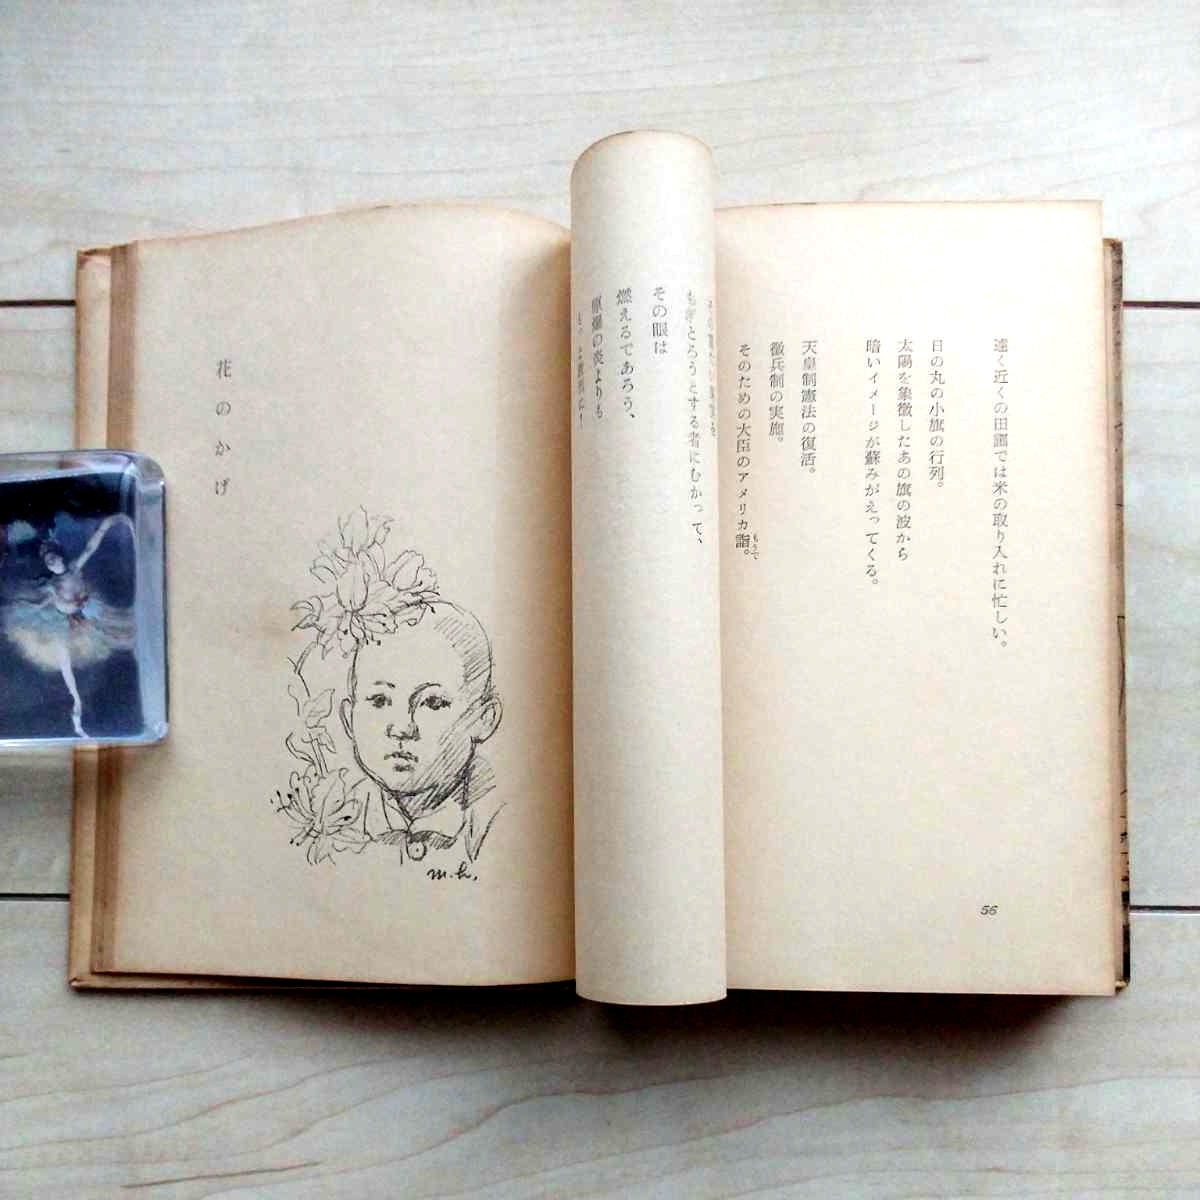 遠く近くの田圃では米の取り入れに忙しい。
日の丸の小旗の行列。
太陽を象徴したあの旗の波から
暗いイメージが蘇みがえってくる。
天皇制憲法の復活。
徴兵制の実施。
そのための大臣のアメリカ詣。
もうで
56
もぎとろうとする者にむかって、
その眼は
燃えるであろう、
原爆の炎よりも
花のかげ
m.h.